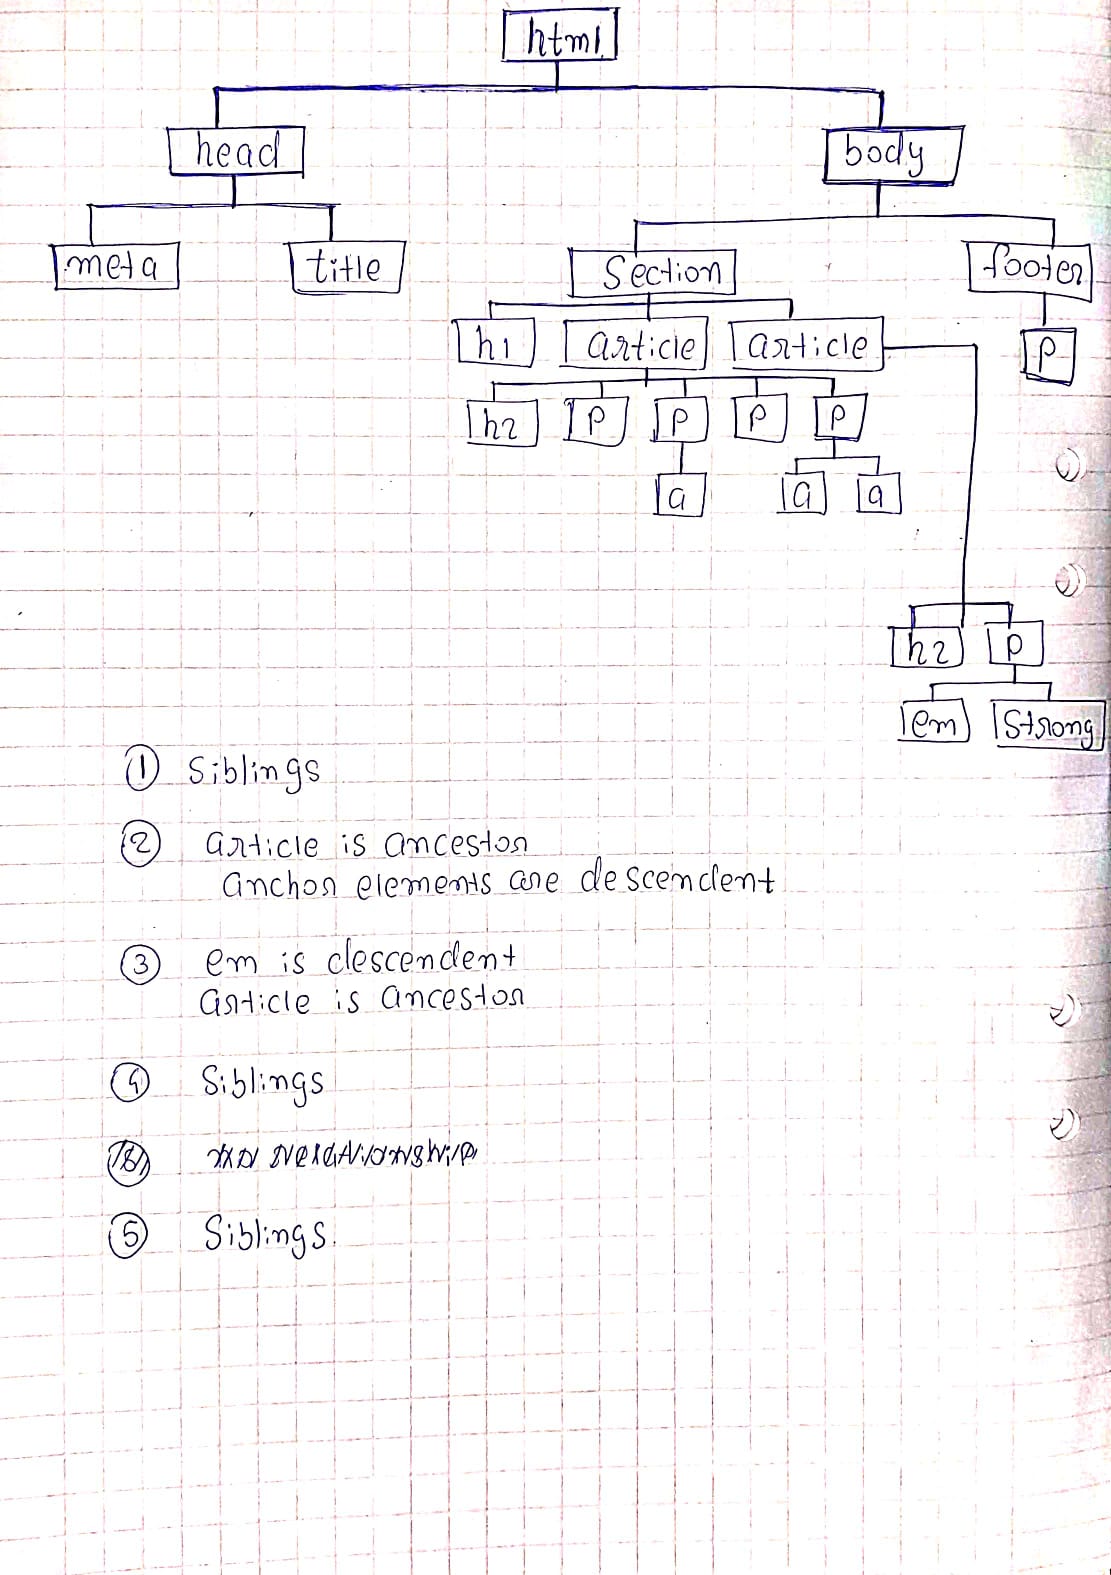 html
head body
meta title Section footer
h1 article article P
h2 P P P P
a a a
h2 P
em Strong
① Siblings
② article is ancestor
anchor elements are descendent
③ em is descendent
article is ancestor
④ Siblings
⑤ Siblings.